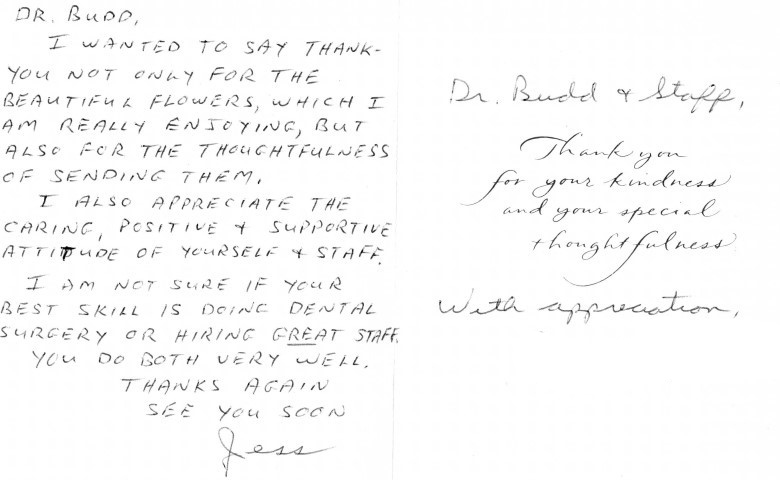 DR. BUDD,
I WANTED TO SAY THANK-
YOU NOT ONLY FOR THE
BEAUTIFUL FLOWERS, WHICH I
AM REALLY ENJOYING, BUT
ALSO FOR THE THOUGHTFULNESS
OF SENDING THEM.
I ALSO APPRECIATE THE
CARING, POSITIVE & SUPPORTIVE
ATTITUDE OF YOURSELF & STAFF.
I AM NOT SURE IF YOUR
BEST SKILL IS DOING DENTAL
SURGERY OR HIRING GREAT STAFF.
YOU DO BOTH VERY WELL.
THANKS AGAIN
SEE YOU SOON
Jess
Dr. Budd & Staff,
Thank you
for your kindness
and your special
thoughtfulness
With appreciation,